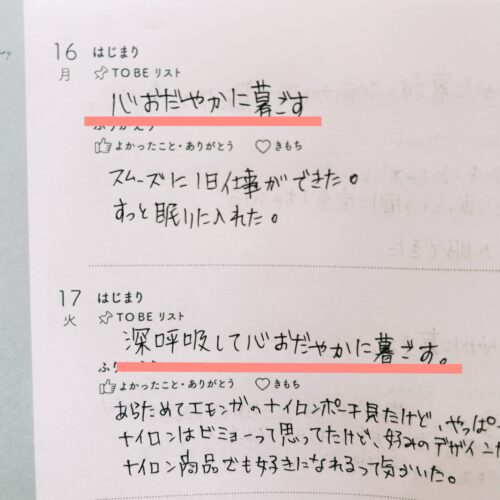 16
はじまり
月
TO BE リスト
心おだやかに暮ごす
ふりかえり
よかったこと・ありがとう きもち
スムーズに1日仕事ができた。
すっと眠りに入れた。
17
はじまり
火
TO BE リスト
深呼吸して心おだやかに暮ごす。
よかったこと・ありがとう きもち
あらためてエモンガのナイロンポーチ見たけど、やっぱ
ナイロンはビミョーって思ってたけど、好みのデザイン
ナイロン商品でも好きになれるって気がいた。